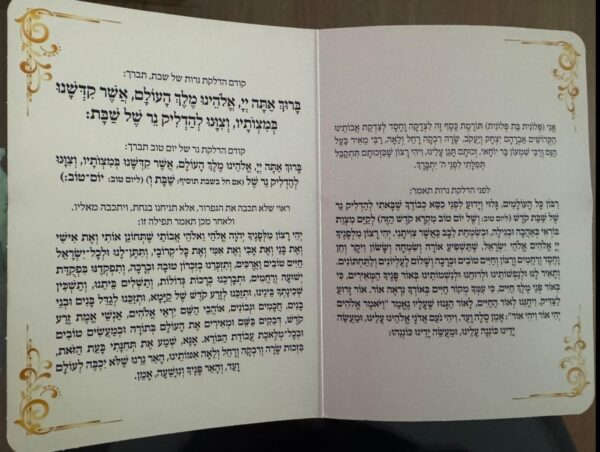 אֲנִי (פְּלוֹנִית בַּת פְּלוֹנִית) תּוֹרֶמֶת כֶּסֶף זֶה לִצְדָקָה וָחֶסֶד לְצִדְקַת אֲבוֹתֵינוּ
הַקְּדוֹשִׁים אַבְרָהָם יִצְחָק וְיַעֲקֹב, שָׂרָה רִבְקָה רָחֵל וְלֵאָה, רַבִּי מֵאִיר בַּעַל
הַנֵּס וְרַבִּי שִׁמְעוֹן בַּר יוֹחַאי, זְכוּתָם תָּגֵן עָלֵינוּ, וִיהִי רָצוֹן שֶׁבִּזְכוּתָם תִּתְקַבֵּל
תְּפִלָּתִי לִפְנֵי ה' יִתְבָּרַךְ.
לפני הדלקת נרות תאמר:
רִבּוֹן כָּל הָעוֹלָמִים, עֲלָה וְרָצוּי לִפְנֵי כִּסֵּא כְבוֹדֶךָ שֶׁבָּאתִי לְהַדְלִיק נֵר
שֶׁל שַׁבָּת קֹדֶשׁ (ליום טוב: וְשֶׁל יוֹם טוֹב מִקְרָא קֹדֶשׁ הַזֶּה) לְקַיֵּם מִצְוַת
בּוֹרְאִי בְּאַהֲבָה וּבְגִילָה, וּבְשִׂמְחַת לֵבָב כַּאֲשֶׁר צִוִּיתַנִי. יְהִי רָצוֹן מִלְּפָנֶיךָ
יְיָ אֱלֹהִים אֱלֹהֵי יִשְׂרָאֵל, שֶׁתַּשְׁפִּיעַ אוֹרָה וְשִׂמְחָה וְשָׂשׂוֹן וִיקָר וְחֵן
וָחֶסֶד וְרַחֲמִים וְחַיִּים וְטוֹבָה וּבְרָכָה וְשָׁלוֹם לָעֶלְיוֹנִים וְלַתַּחְתּוֹנִים.
וְתָאִיר לָנוּ וּלְנַפְשׁוֹתֵינוּ וּלְרוּחֵנוּ וּלְנִשְׁמוֹתֵינוּ בְּאוֹר פָּנֶיךָ הַמְּאִירִים, כִּי
בְּאוֹר פְּנֵי מֶלֶךְ חַיִּים, כִּי עִמְּךָ מְקוֹר חַיִּים בְּאוֹרְךָ נִרְאֶה אוֹר, אוֹר זָרֻעַ
לַצַּדִּיק, וְיִחַנֵּנוּ לְאוֹר הַחַיִּים, לְאוֹר הַגָּנוּז שֶׁעָלָיו נֶאֱמַר "וַיֹּאמֶר אֱלֹהִים
יְהִי אוֹר וַיְהִי אוֹר". אָמֵן סֶלָה וָעֶד, וִיהִי נֹעַם אֲדֹנָי אֱלֹהֵינוּ עָלֵינוּ, וּמַעֲשֵׂה
יָדֵינוּ כּוֹנְנָה עָלֵינוּ, וּמַעֲשֵׂה יָדֵינוּ כּוֹנְנֵהוּ:
קודם הדלקת נרות של שבת, תברך:
בָּרוּךְ אַתָּה יְיָ, אֱלֹהֵינוּ מֶלֶךְ הָעוֹלָם, אֲשֶׁר קִדְּשָׁנוּ
בְּמִצְוֹתָיו, וְצִוָּנוּ לְהַדְלִיק נֵר שֶׁל שַׁבָּת:
קודם הדלקת נרות של יום טוב תברך:
בָּרוּךְ אַתָּה יְיָ, אֱלֹהֵינוּ מֶלֶךְ הָעוֹלָם, אֲשֶׁר קִדְּשָׁנוּ בְּמִצְוֹתָיו, וְצִוָּנוּ
לְהַדְלִיק נֵר שֶׁל (אם חל בשבת תוסיף: שַׁבָּת וְ) (ליום טוב: יוֹם־טוֹב:)
ראוי שלא תכבה את הגפרור, אלא תניחנו בנחת, ויתכבה מאליו.
ולאחר מכן תאמר תפילה זו:
יְהִי רָצוֹן מִלְּפָנֶיךָ יְהֹוָה אֱלֹהַי וֵאלֹהֵי אֲבוֹתַי שֶׁתְּחוֹנֵן אוֹתִי וְאֶת אִישִׁי
וְאֶת בָּנַי וְאֶת אָבִי וְאֶת אִמִּי וְאֶת כָּל־קְרוֹבַי, וְתִתֵּן־לָנוּ וּלְכָל־יִשְׂרָאֵל
חַיִּים טוֹבִים וַאֲרֻכִּים, וְתִזְכְּרֵנוּ בְּזִכְרוֹן טוֹבָה וּבְרָכָה, וְתִפְקְדֵנוּ בִּפְקֻדַּת
יְשׁוּעָה וְרַחֲמִים, וּתְבָרְכֵנוּ בְּרָכוֹת גְּדוֹלוֹת, וְתַשְׁלִים בֵּיתֵנוּ, וְתַשְׁכִּין
שְׁכִינָתְךָ בֵּינֵינוּ, וּתְזַכֵּנוּ לְזֶרַע קֹדֶשׁ שֶׁל קַיָּמָא, וּתְזַכֵּנוּ לְגַדֵּל בָּנִים וּבְנֵי
בָנִים, חֲכָמִים וּנְבוֹנִים, אוֹהֲבֵי הַשֵּׁם יִרְאֵי אֱלֹהִים, אַנְשֵׁי אֱמֶת זֶרַע
קֹדֶשׁ, דְּבֵקִים בַּשֵּׁם וּמְאִירִים אֶת הָעוֹלָם בְּתוֹרָה וּבְמַעֲשִׂים טוֹבִים
וּבְכָל־מְלֶאכֶת עֲבוֹדַת הַבּוֹרֵא. אָנָּא, שְׁמַע אֶת תְּחִנָּתִי בָּעֵת הַזֹּאת,
בִּזְכוּת שָׂרָה וְרִבְקָה וְרָחֵל וְלֵאָה אִמּוֹתֵינוּ, הָאֵר נֵרֵנוּ שֶׁלֹּא יִכְבֶּה לְעוֹלָם
וָעֶד, וְהָאֵר פָּנֶיךָ וְנִוָּשֵׁעָה, אָמֵן.